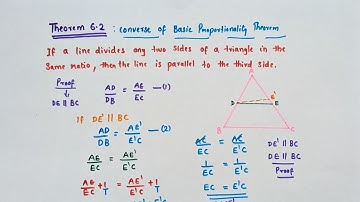 Theorem 6.2 : converse of Basic Proportionality Theorem
If a line divides any two sides of a triangle in the
same ratio, then the line is parallel to the third side.
Proof
DE || BC
AD/DB = AE/EC —(1)
If DE' || BC
AD/DB = AE'/E'C —(2)
AE/EC = AE'/E'C
AE/EC + 1/1 = AE'/E'C + 1/1
AC/EC = AC/E'C
1/EC = 1/E'C
EC = E'C
A
D
E'
E
B
C
DE' || BC
DE || BC
Proof